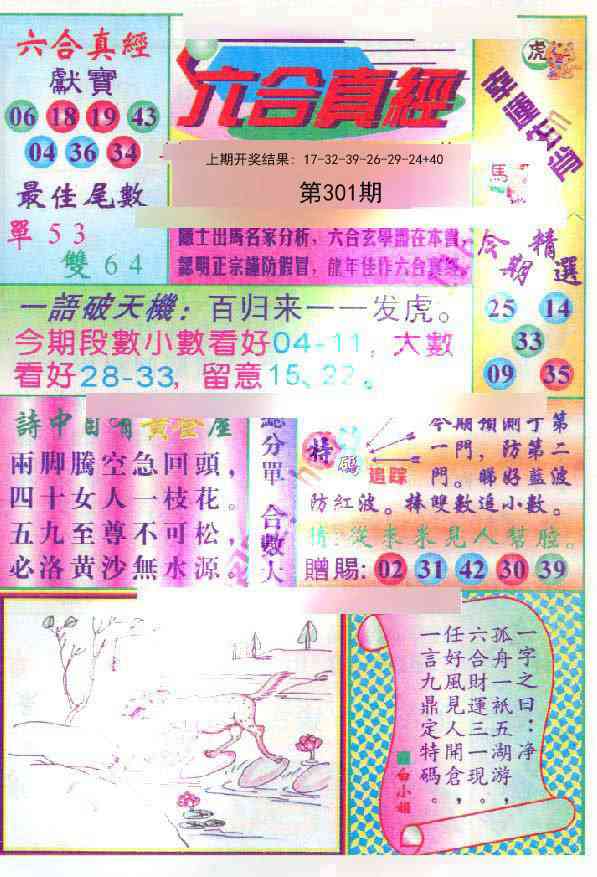 六合真經
獻寶
06 18 19 43
04 36 34
最佳尾數
單 5 3
雙 6 4
六合真經
上期开奖结果: 17-32-39-26-29-24+40
第301期
認明正宗謹防假冒，龍年佳作六合真經。
虎
幸運生肖
馬
今期精選
25 14
33
09 35
一語破天機：百归来一一发虎。
今期段數小數看好04-11，大數
看好28-33，留意15、22。
詩中自有黃金屋
兩脚騰空急回頭，
四十女人一枝花。
五九至尊不可松，
必洛黃沙無水源。
總分單 合數大
特碼
追踪
今期預測于第
一門，防第二
門。睇好藍波
防紅波。捧雙數追小數。
猜：從來未見人幫脸。
贈賜: 02 31 42 30 39
一字之曰：净
孤舟一衹五湖游，
六合財運三一現。
任好風見人開倉，
一言九鼎定特碼。
白小姐